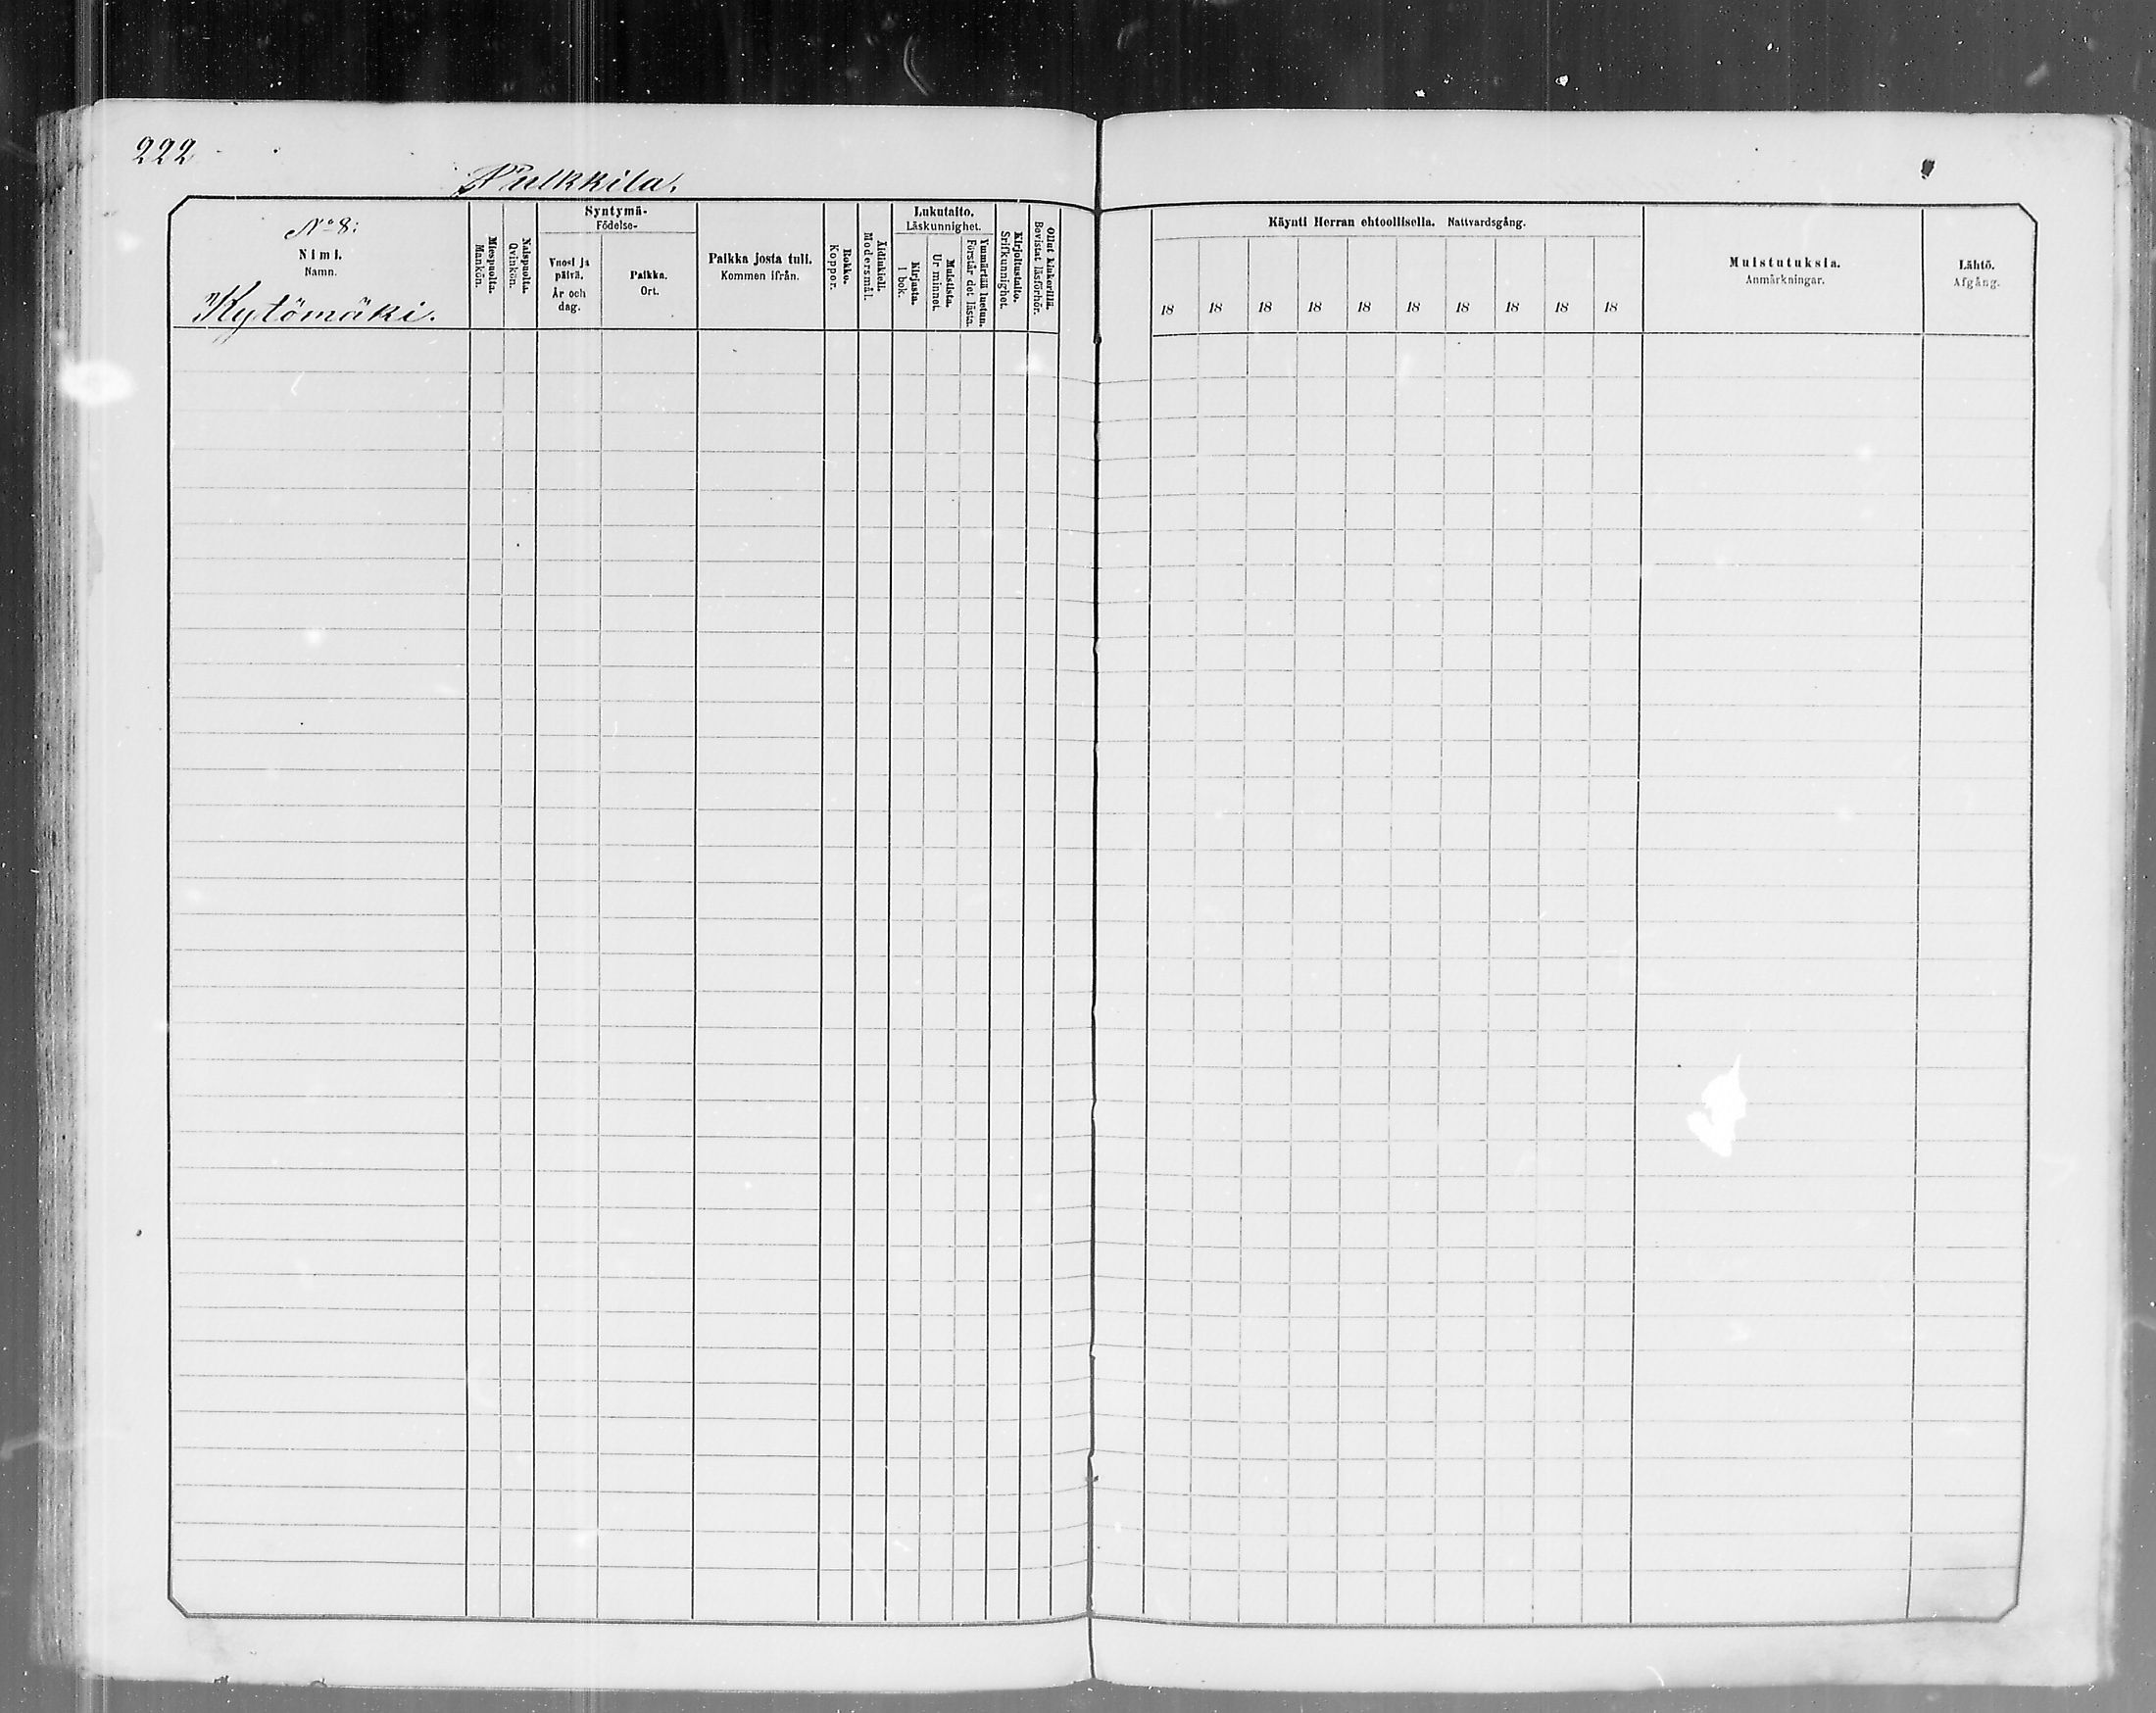 222
Pulkkila.
No 8:
Nimi.
Namn.
Kytömäki.
Miespuolia.
Mankön.
Naispuolia.
Qvinkön.
Syntymä-
Födelse-
Vuosi ja
päivä.
År och
dag.
Paikka.
Ort.
Paikka josta tuli.
Kommen ifrån.
Rokko.
Koppor.
Äidinkieli.
Modersmål.
Lukutaito.
Läskunnighet.
Kirjasta.
I bok.
Muistista.
Ur minnet.
Ymmärtää luetun.
Förstår det lästa.
Kirjoitustaito.
Srifkunnighet.
Ollut kinkerillä.
Bevistat läsförhör.
Käynti Herran ehtoollisella. Nattvardsgång.
18 18 18 18 18 18 18 18 18 18
Muistutuksia.
Anmärkningar.
Lähtö.
Afgång.